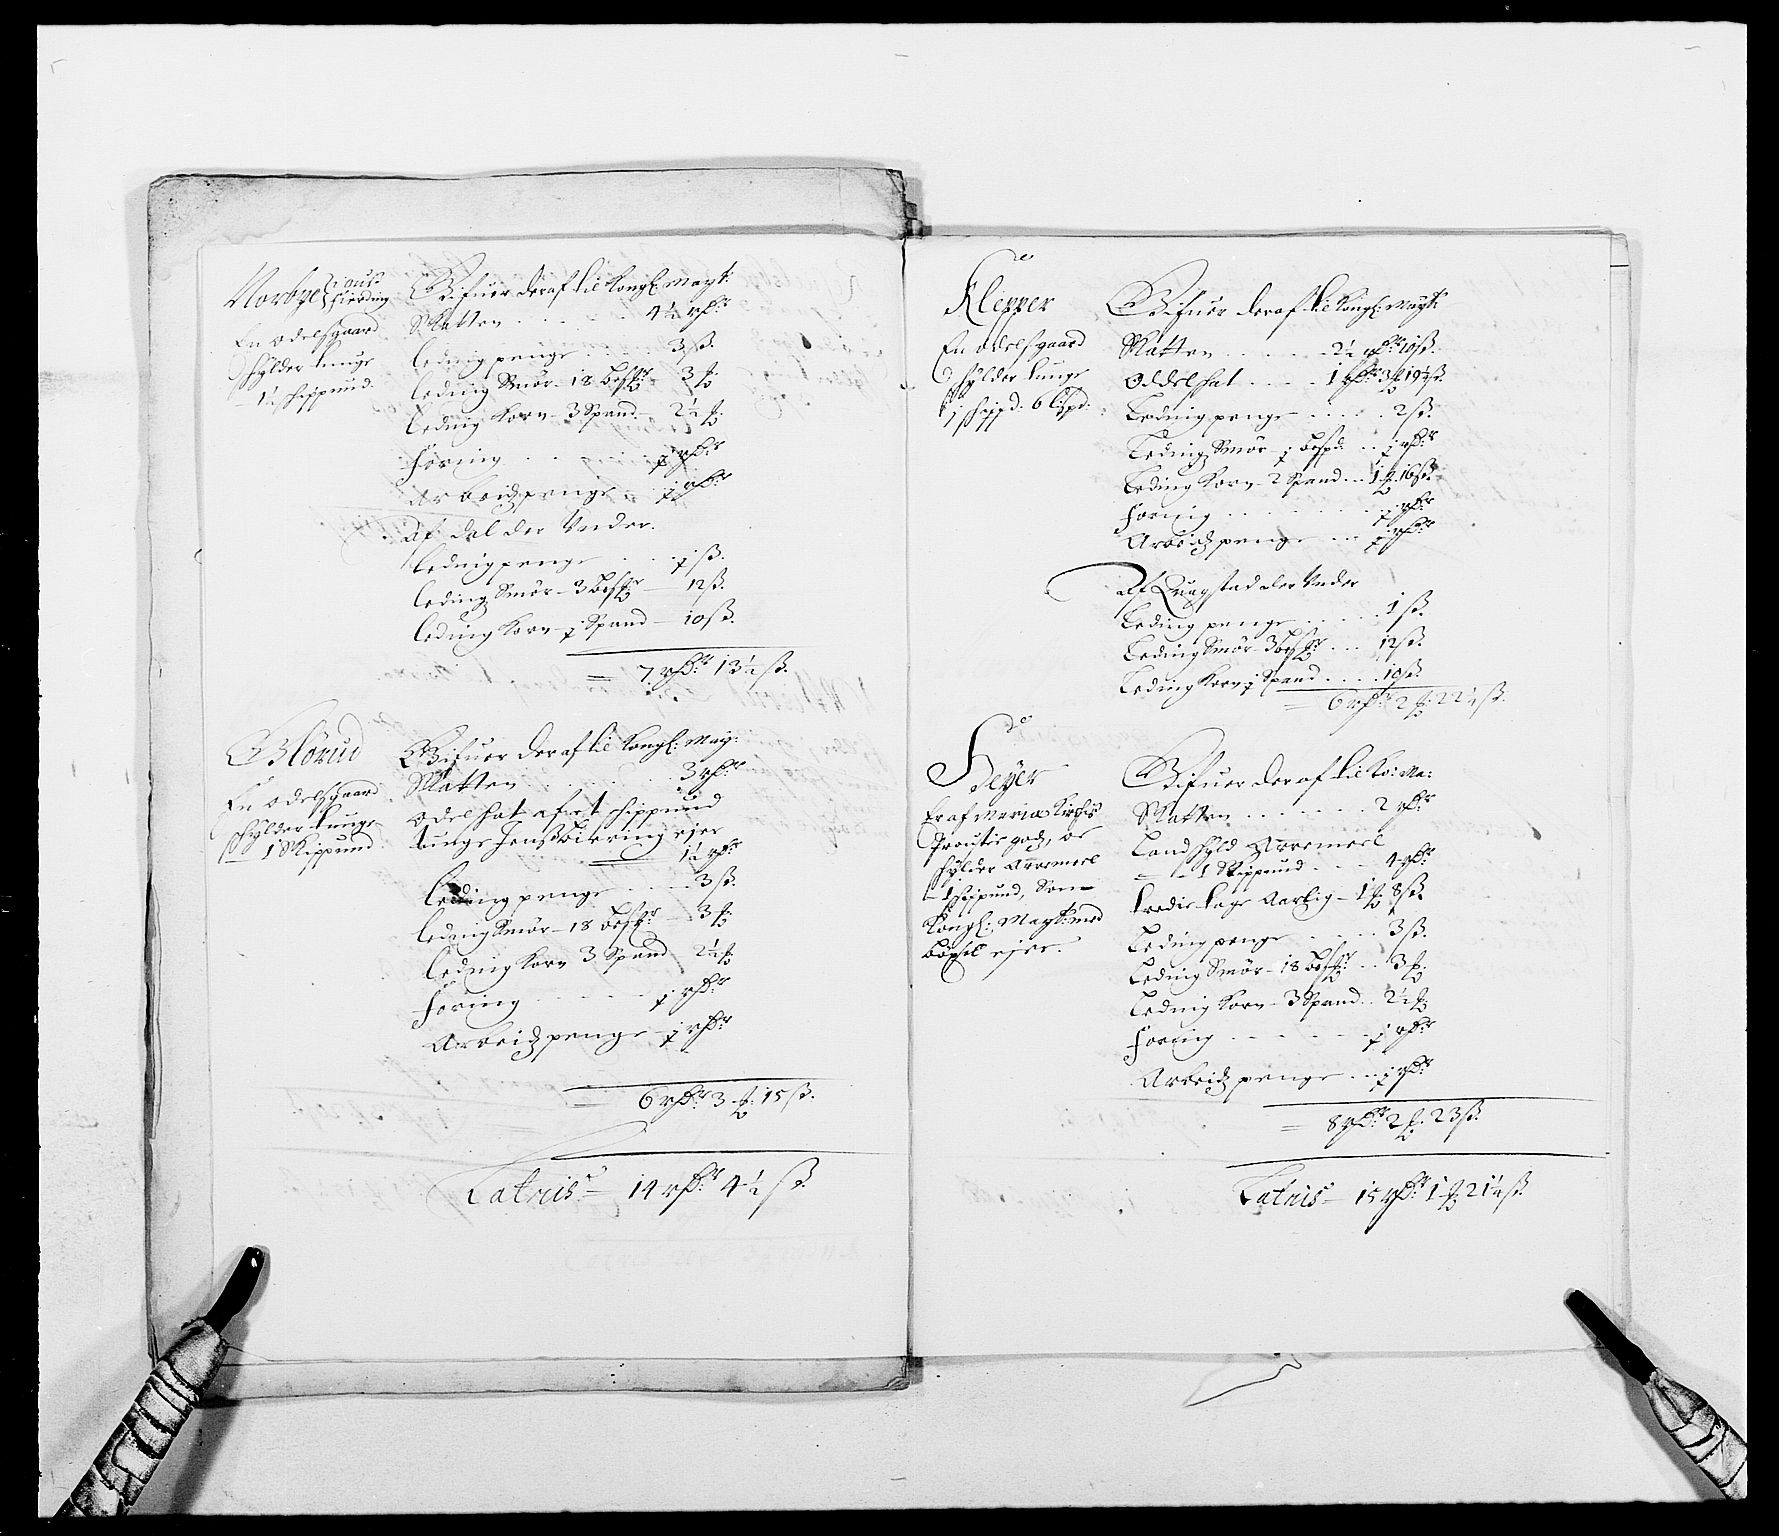 Norbye
En odelsgaard
schylder tunge
1½ schippund
Gifuer deraf til Kongl: Mayt:
Skatten . . . . 4½ rdr
leding penge . . . . 3 ß.
leding Smør - 18 - 3
leding Korn - 3 Spand - 2½
Foring . . . j rdr
Arbeidz penge . . j rdr
af dal der Under.
leding penge . . . j ß.
leding Smør - 3 - 12 ß.
leding Korn - j Spand - 10 ß.
7 rdr 13½ ß.
Glorud
En odelsgaard
schylder tunge
1 Skippund
Gifuer deraf til Kongl: May:
Skatten . . . . 3 rdr
odelskat af et schippund
tunge Jens ejer
1½ rdr
leding penge . . . . 3 ß.
leding Smør - 18 - 3
leding Korn 3 Spand - 2½
Foring . . . . j rdr
Arbeidz penge - j rdr
6 rdr 3 15 ß.
Latris - 14 rdr 4½ ß.
Klepper
En odelsgaard
schylder tunge
j schipd: 6 lispd:
Gifuer deraf til Kongl: Mayt:
Skatten . . . . . 2½ rdr 10 ß.
Oddelskat . . . . 1 rdr 3 19½ ß.
Leding penge . . . . . 2 ß.
Leding Smør j . . j rdr
Leding Korn - 2 Spand . . . 1 16 ß.
Foring . . . . . . . j rdr
Arbeidz penge . . . j rdr
af Rugstad der Under
Leding penge . . . . . 1 ß.
Leding Smør - 3 . . . 12 ß.
Leding Korn j Spand . . . . 10 ß.
6 rdr 2 22½ ß.
Heyer
Er af Mariæ Kirches
Proustie godz, och
schylder Arremeel
1 schipund, Som
Kongl: Mayt: med
bøxel ejer.
Gifuer deraf til Ko: Ma:
Skatten . . . . . . 2 rdr
Landschyld Arremeel
1 Skippund . . . . 4 rdr
tredie tage Aarlig - 1 8 ß.
Leding penge . . . . 3 ß.
Leding Smør - 18 . . 3
Leding Korn - 3 Spand . . 2½
Foring . . . . . . j rdr
Arbeidz penge . . . j rdr
8 rdr 2 23 ß.
Latris - 15 rdr 1 21½ ß.